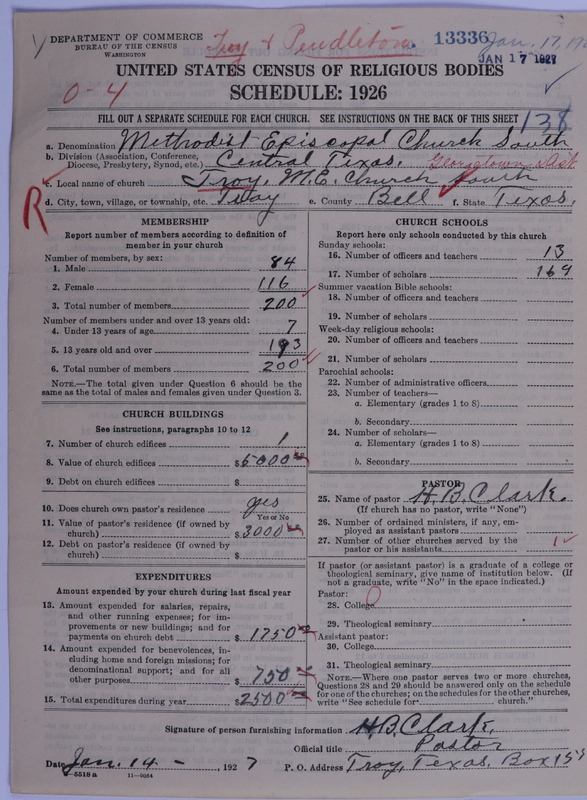 DEPARTMENT OF COMMERCE
BUREAU OF THE CENSUS
WASHINGTON
Troy & Pendleton. 13336 Jan. 17, 19
JAN 17 1927
UNITED STATES CENSUS OF RELIGIOUS BODIES
0-4
SCHEDULE: 1926
FILL OUT A SEPARATE SCHEDULE FOR EACH CHURCH. SEE INSTRUCTIONS ON THE BACK OF THIS SHEET
138
a. Denomination Methodist Episcopal Church South
b. Division (Association, Conference, Diocese, Presbytery, Synod, etc.) Central Texas. Georgetown Dist
c. Local name of church Troy, M.E. Church South
d. City, town, village, or township, etc. Troy e. County Bell f. State Texas.
R
MEMBERSHIP
Report number of members according to definition of
member in your church
Number of members, by sex:
1. Male 84
2. Female 116
3. Total number of members 200
Number of members under and over 13 years old:
4. Under 13 years of age 7
5. 13 years old and over 193
6. Total number of members 200
NOTE.—The total given under Question 6 should be the
same as the total of males and females given under Question 3.
CHURCH BUILDINGS
See instructions, paragraphs 10 to 12
7. Number of church edifices 1
8. Value of church edifices $5000
9. Debt on church edifices $
10. Does church own pastor's residence yes
Yes or No
11. Value of pastor's residence (if owned by
church) $3000
12. Debt on pastor's residence (if owned by
church) $
EXPENDITURES
Amount expended by your church during last fiscal year
13. Amount expended for salaries, repairs,
and other running expenses; for im-
provements or new buildings; and for
payments on church debt $1750
14. Amount expended for benevolences, in-
cluding home and foreign missions; for
denominational support; and for all
other purposes $750
15. Total expenditures during year $2500
CHURCH SCHOOLS
Report here only schools conducted by this church
Sunday schools:
16. Number of officers and teachers 13
17. Number of scholars 169
Summer vacation Bible schools:
18. Number of officers and teachers
19. Number of scholars
Week-day religious schools:
20. Number of officers and teachers
21. Number of scholars
Parochial schools:
22. Number of administrative officers
23. Number of teachers—
a. Elementary (grades 1 to 8)
b. Secondary
24. Number of scholars—
a. Elementary (grades 1 to 8)
b. Secondary
PASTOR
25. Name of pastor H.B. Clark.
(If church has no pastor, write "None")
26. Number of ordained ministers, if any, em-
ployed as assistant pastors
27. Number of other churches served by the
pastor or his assistants 1
If pastor (or assistant pastor) is a graduate of a college or
theological seminary, give name of institution below. (If
not a graduate, write "No" in the space indicated.)
Pastor:
28. College 0
29. Theological seminary
Assistant pastor:
30. College
31. Theological seminary
NOTE.—Where one pastor serves two or more churches,
Questions 28 and 29 should be answered only on the schedule
for one of the churches; on the schedules for the other churches,
write "See schedule for church."
Signature of person furnishing information H.B. Clark.
Official title Pastor
Date Jan. 14 - , 1927 P. O. Address Troy, Texas, Box 155
5518 a 11-9564